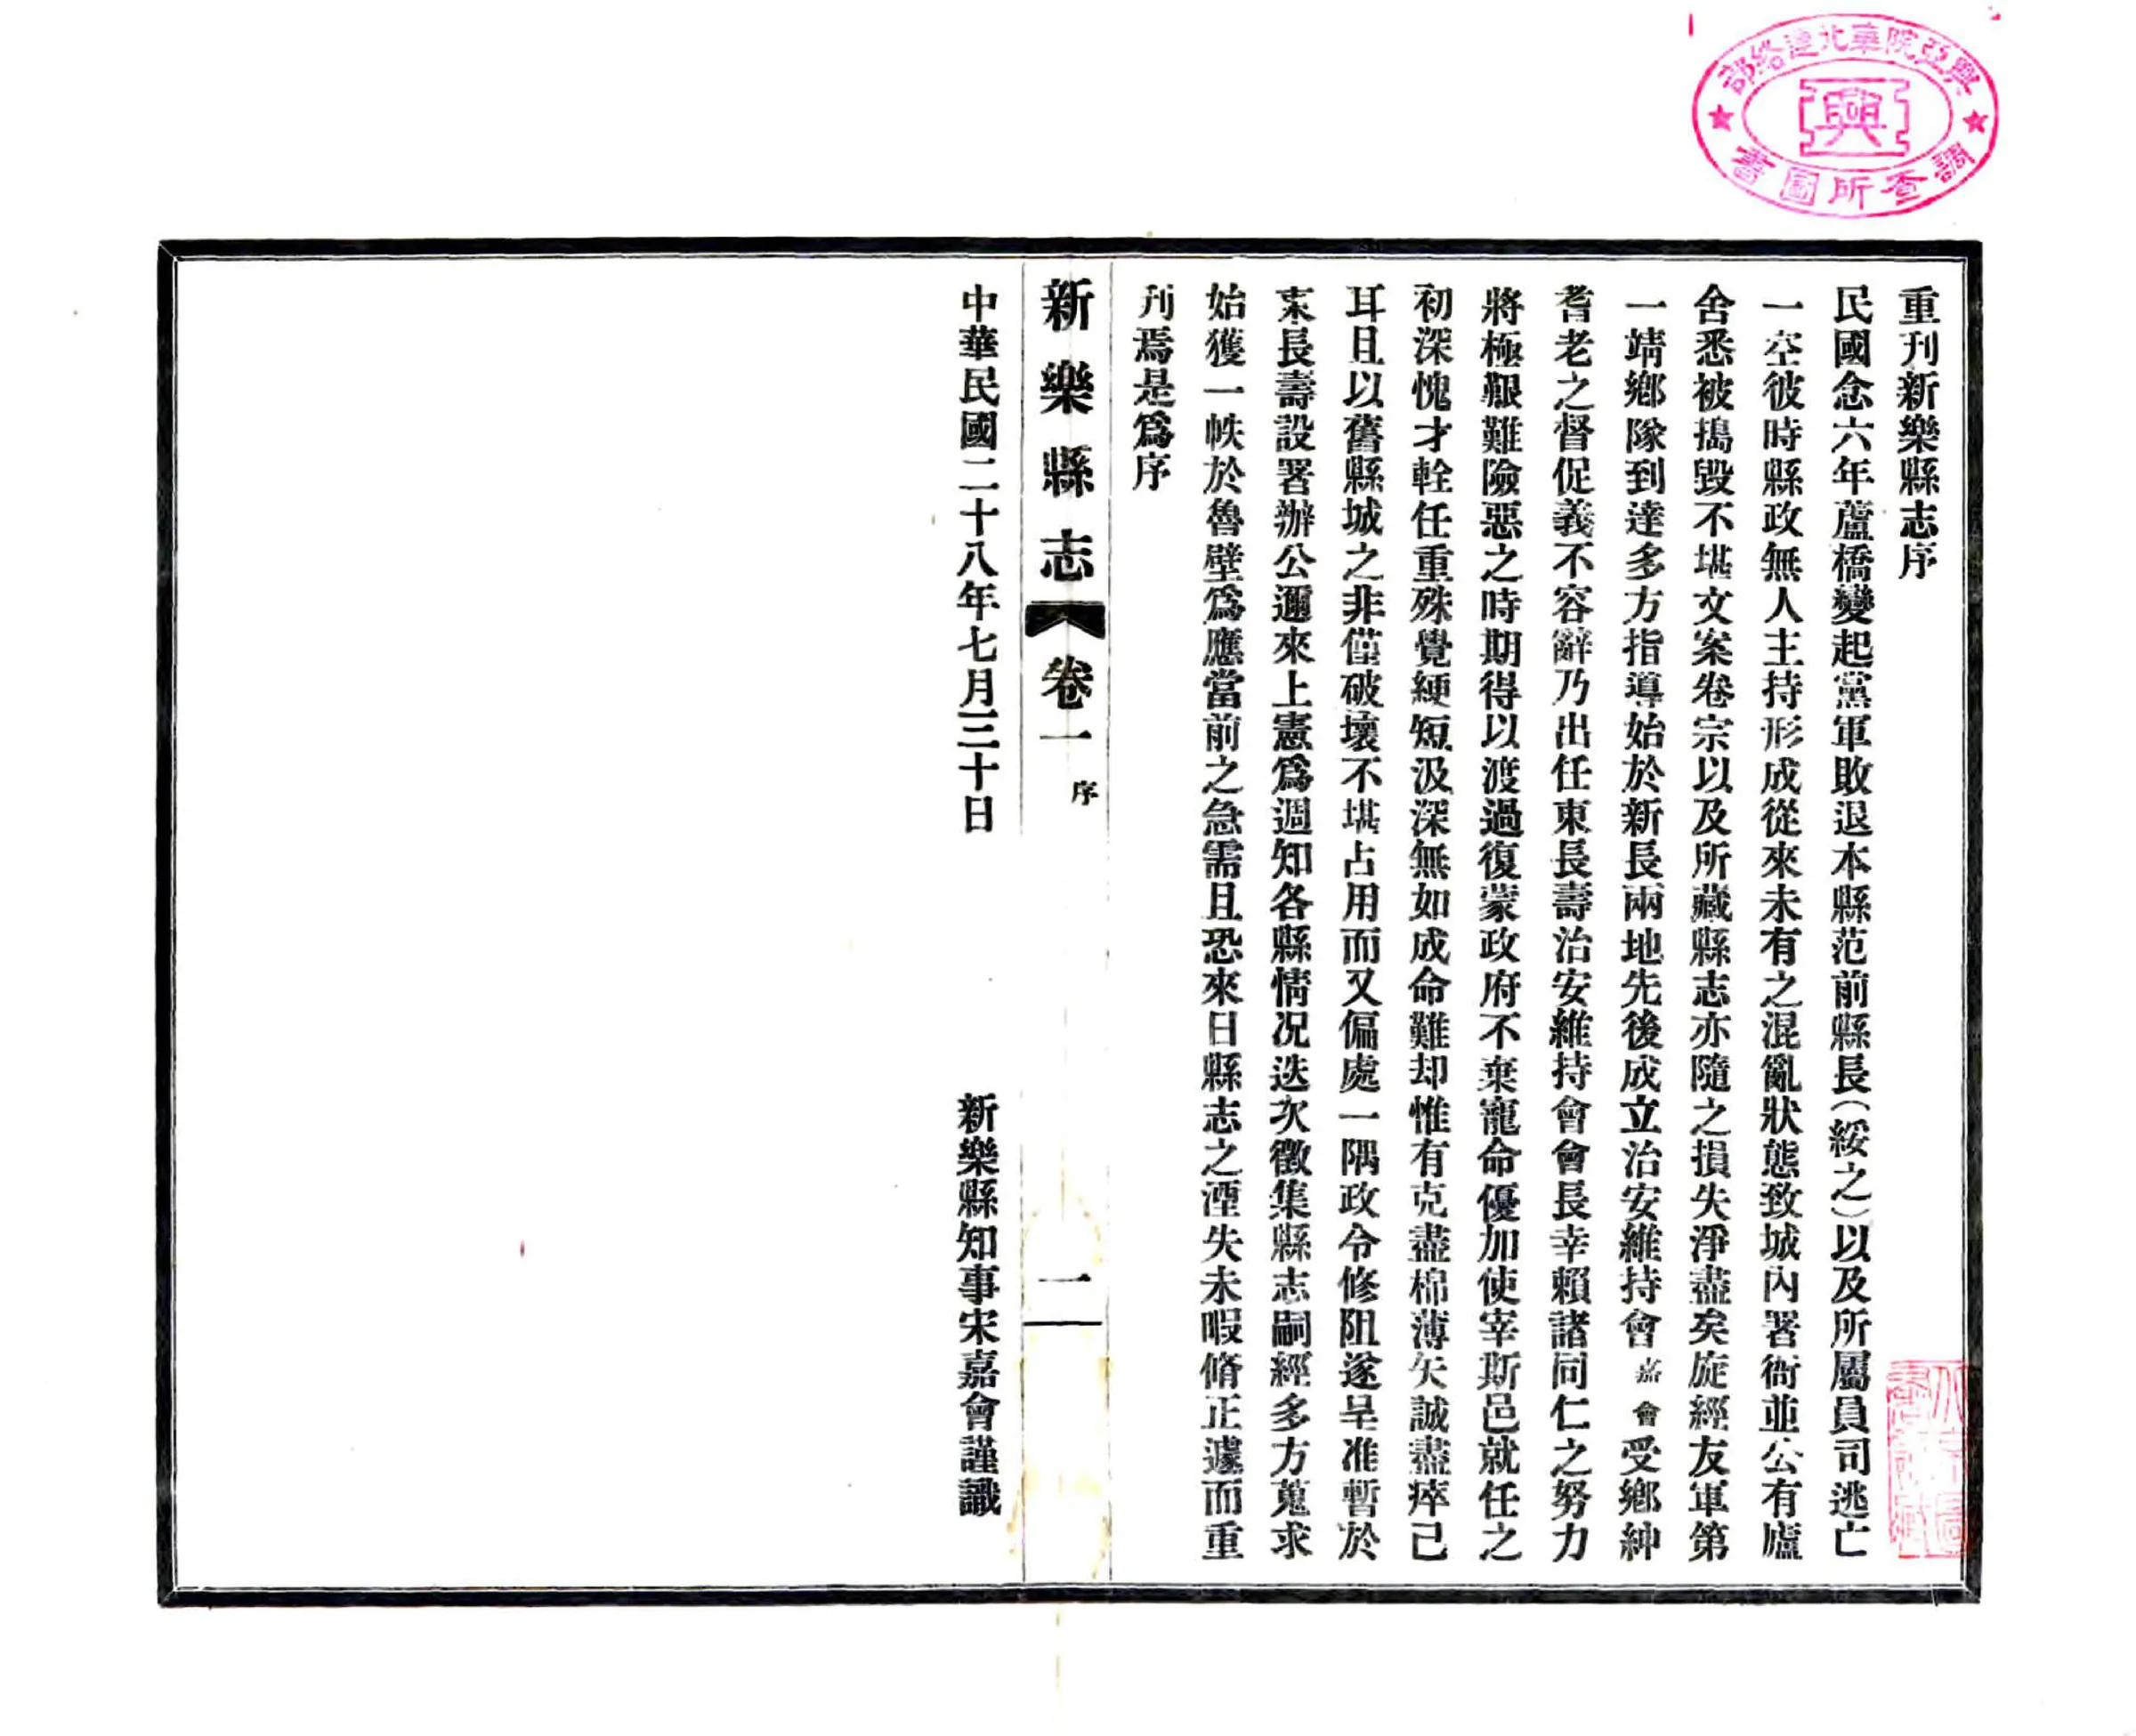 興亞院華北連絡部
興
調查所圖書
重刊新樂縣志序
民國念六年蘆橋變起黨軍敗退本縣范前縣長(綏之)以及所屬員司逃亡
一空彼時縣政無人主持形成從來未有之混亂狀態致城內署衙並公有廬
舍悉被搗毀不堪文案卷宗以及所藏縣志亦隨之損失淨盡矣旋經友軍第
一靖鄉隊到達多方指導始於新長兩地先後成立治安維持會嘉會受鄉紳
耆老之督促義不容辭乃出任東長壽治安維持會會長幸賴諸同仁之努力
將極艱難險惡之時期得以渡過復蒙政府不棄寵命優加使宰斯邑就任之
初深愧才輇任重殊覺綆短汲深無如成命難却惟有克盡棉薄矢誠盡瘁已
耳且以舊縣城之非僅破壞不堪占用而又偏處一隅政令修阻遂呈准暫於
東長壽設署辦公邇來上憲爲週知各縣情况迭次徵集縣志嗣經多方蒐求
始獲一帙於魯壁爲應當前之急需且恐來日縣志之湮失未暇脩正遽而重
刊焉是爲序
新樂縣志 卷一 序 一
中華民國二十八年七月三十日
新樂縣知事宋嘉會謹識